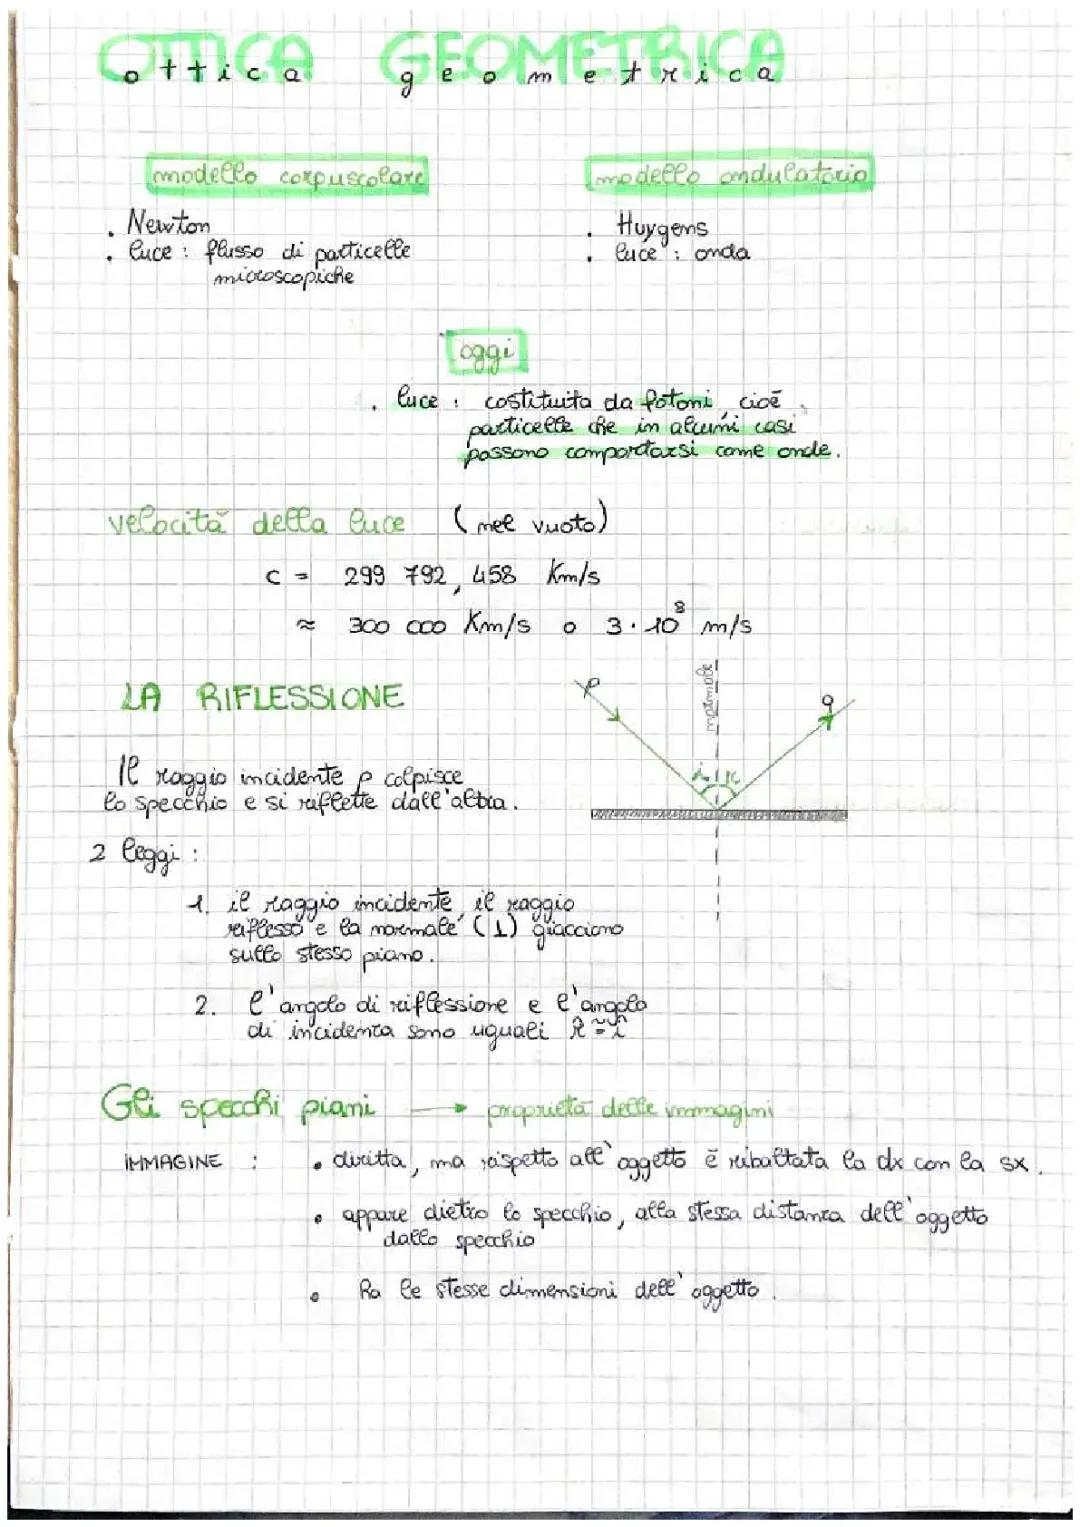 OTTICA GEOMETRICA
ottica geometrica
modello corpuscolare
modello ondulatorio
. Newton
. luce : flusso di particelle
microscopiche
. Huygens
. luce : onda
oggi
. luce : costituita da fotoni, cioè
particelle che in alcuni casi
possono comportarsi come onde.
velocità della luce (nel vuoto)
c = 299 792,458 Km/s
≈ 300 000 Km/s o 3·10⁸ m/s
LA RIFLESSIONE
p
normale
q
i r
Il raggio incidente p colpisce
lo specchio e si riflette dall'altra.
2 leggi :
1. il raggio incidente, il raggio
riflesso e la normale (⊥) giacciono
sullo stesso piano.
2. l'angolo di riflessione e l'angolo
di incidenza sono uguali r̂ ≅ î
Gli specchi piani → proprietà delle immagini
IMMAGINE : • diritta, ma rispetto all'oggetto è ribaltata la dx con la sx.
• appare dietro lo specchio, alla stessa distanza dell'oggetto
dallo specchio
• ha le stesse dimensioni dell'oggetto.